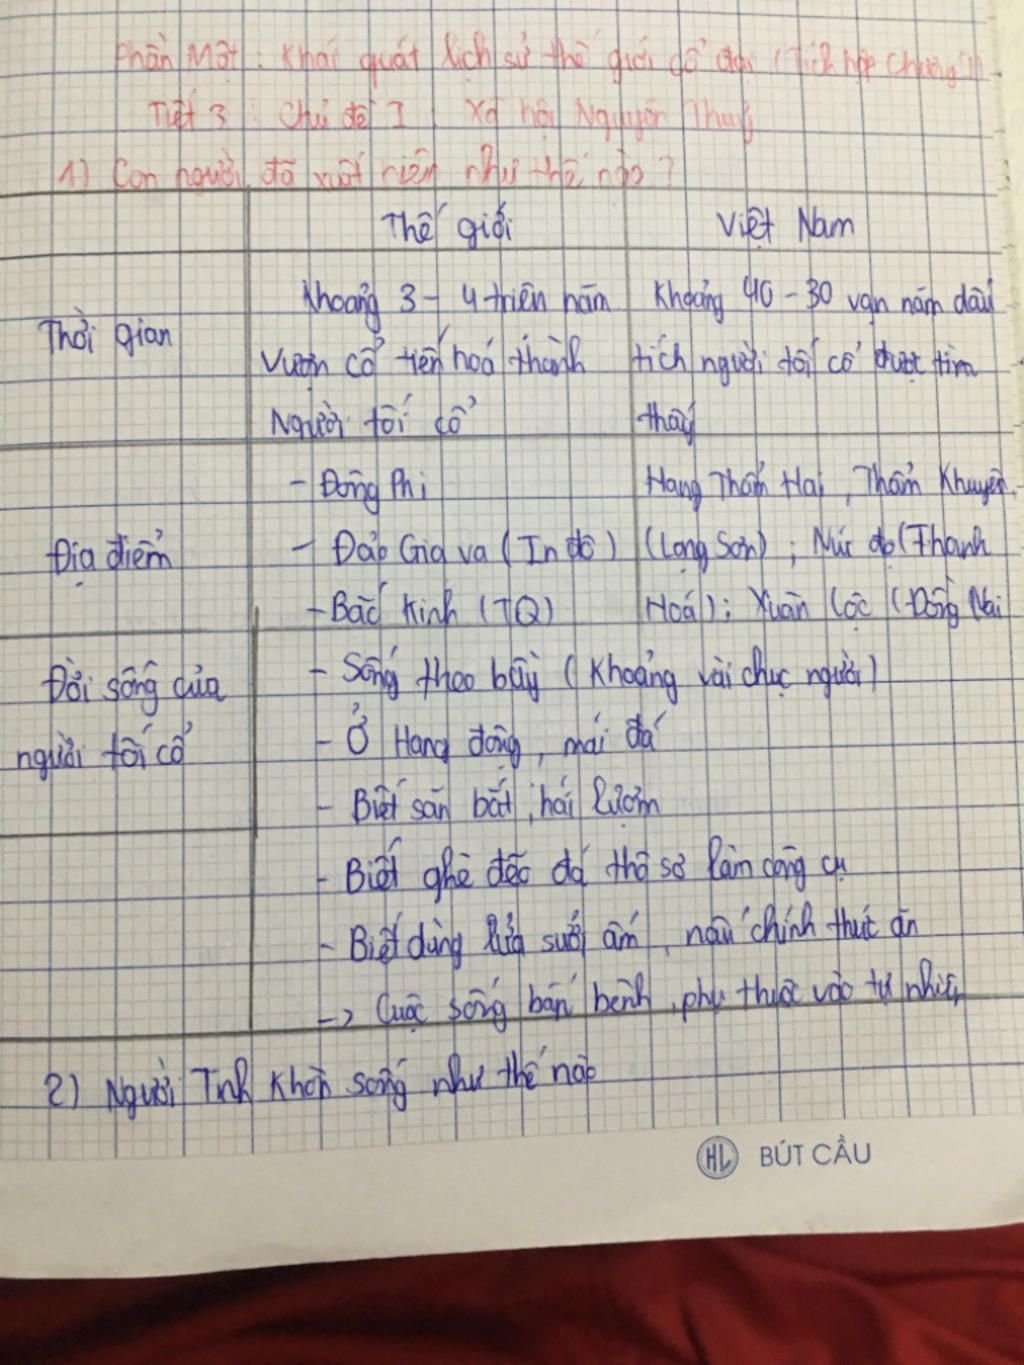 Phần Một : Khái quát lịch sử thế giới cổ đại (Tích hợp chương 1)
Tiết 3 : Chủ đề I : Xã hội Nguyên Thuỷ
1) Con người đã xuất hiện như thế nào ?
Thế giới
Việt Nam
Thời gian
Khoảng 3 - 4 triên năm
Vượn cổ tiến hoá thành
Người tối cổ
Khoảng 40 - 30 vạn năm dấu
tích người tối cổ được tìm
thấy
Địa điểm
- Đông Phi
- Đảo Gia va (In đô)
- Bắc Kinh (TQ)
Hang Thẩm Hai, Thẩm Khuyên
(Lạng Sơn) ; Núi đọ (Thanh
Hoá) ; Xuân Lộc (Đồng Nai
Đời sống của
người tối cổ
- Sống theo bầy (Khoảng vài chục người)
- Ở Hang động, mái đá
- Biết săn bắt, hái lượm
- Biết ghè đẽo đá thô sơ làm công cụ
- Biết dùng lửa sưởi ấm, nấu chính thức ăn
-> Cuộc sống bấp bênh, phụ thuộc vào tự nhiên
2) Người Tinh Khôn sống như thế nào
HL BÚT CẦU